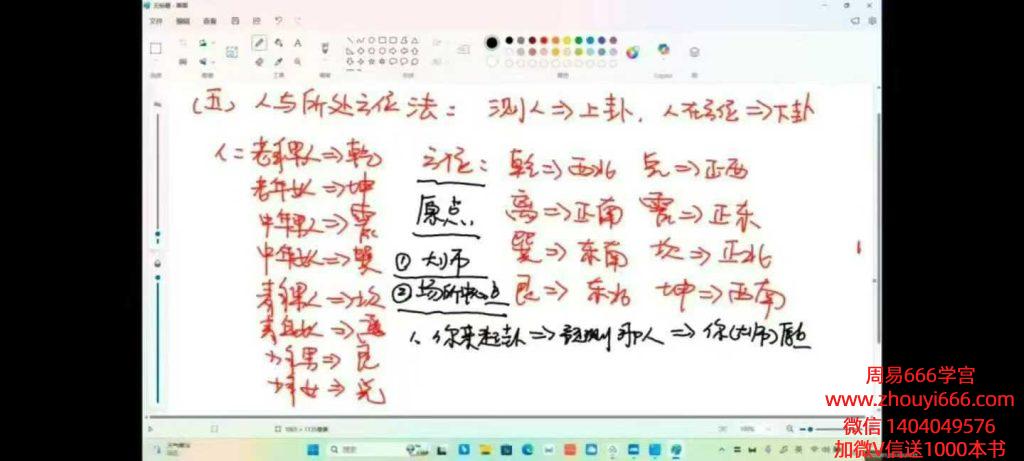 (五) 人与所处之位法: 测人⇒上卦, 人在之位⇒下卦
人: 老年男人⇒乾
老年女⇒坤
中年男人⇒震
中年女⇒巽
青年男人⇒坎
青年女⇒离
少年男⇒艮
少年女⇒兑
之位: 乾⇒西北 兑⇒正西
离⇒正南 震⇒正东
巽⇒东南 坎⇒正北
艮⇒东北 坤⇒西南
原点
① 大师
② 场所中心点
1、你来起卦⇒被测那人⇒你(大师)原点
文件 编辑 查看
工具
形状
颜色
搜索
周易666学宫
www.zhouyi666.com
微信 1404049576
加微V信送1000本书